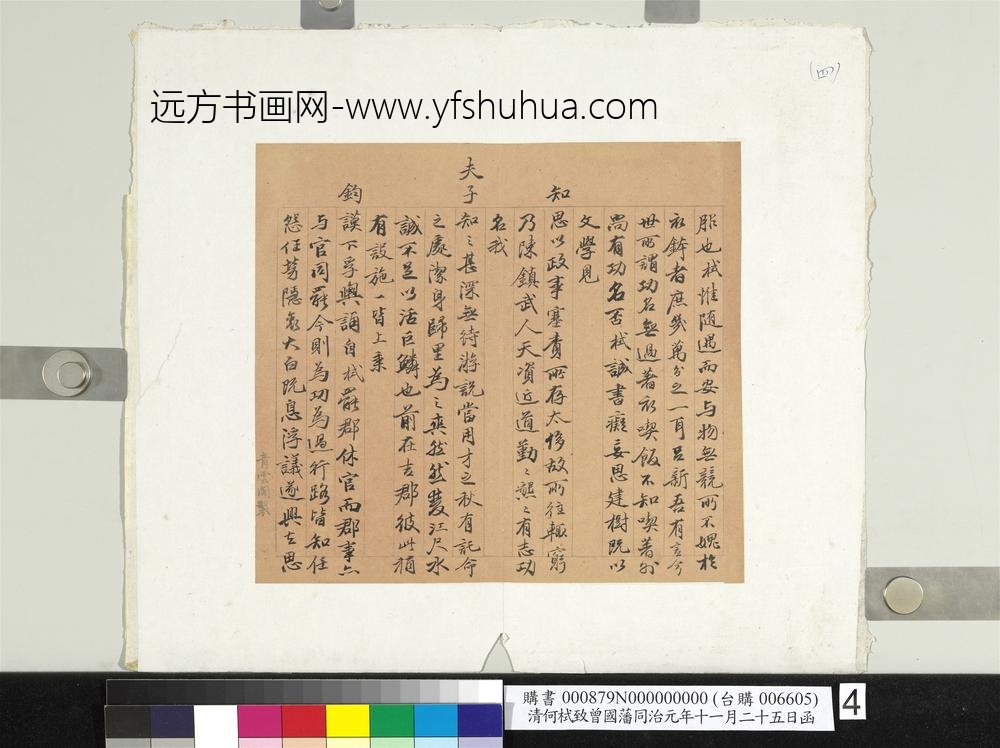 (四)
远方书画网-www.yfshuhua.com
服也栻惟随遇而安与物無競所不媿於
衣鉢者庶幾萬分之一耳呂新吾有言今
世所謂功名無過著衣喫飯不知喫著外
尚有功名否栻誠書癡妄思建樹既以
文學見
知思以政事塞責所存太侈故所往輒窮
乃陳鎮武人天資近道勤〻懇〻有志功
名我
夫子知〻甚深無待游說當用才之秋有託命
之處潔身歸里為〻爽然然蓼江尺水
誠不足以活巨鱗也前在吉郡彼此稍
有設施一皆上秉
鈞謨下孚輿誦自栻罷郡休官而郡事亦
与官同罷今則為功為過行路皆知任
怨任勞隱衷大白阮息浮議遂興去思
青雲閣製
購書 000879N000000000 (台購 006605)
清何栻致曾國藩同治元年十一月二十五日函
4